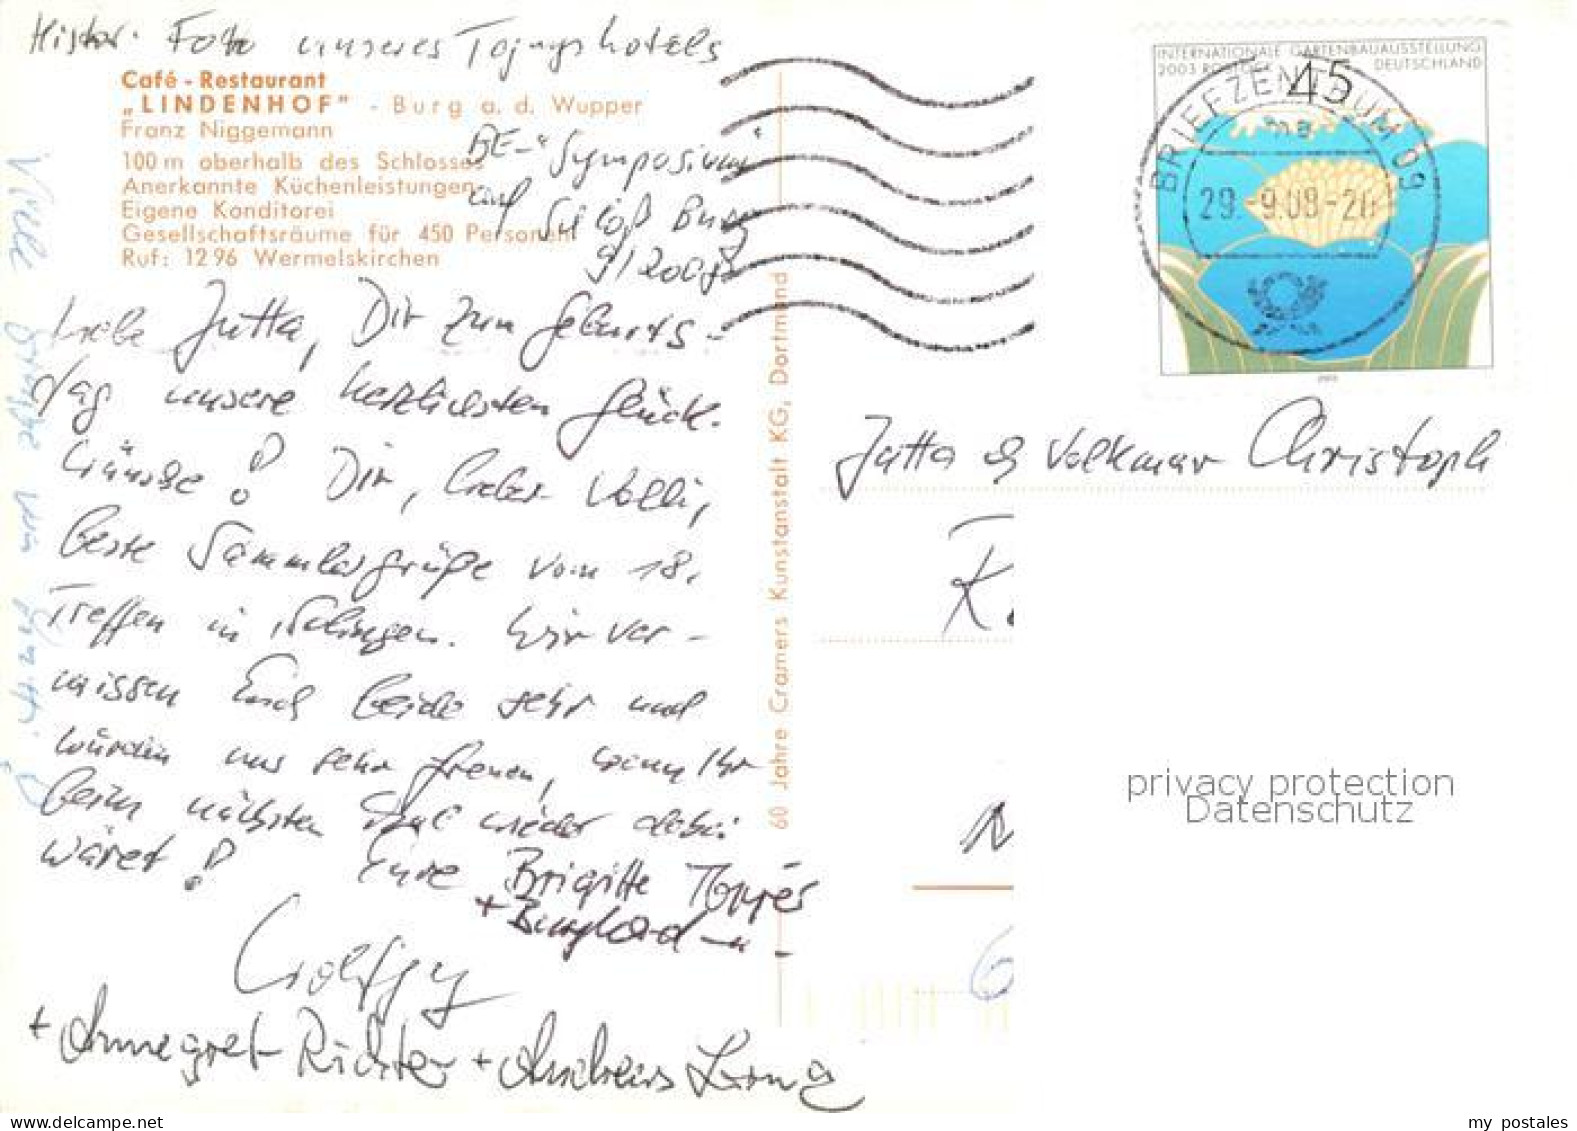 Histor. Foto unseres Tagungshotels
Café - Restaurant
„LINDENHOF" - Burg a. d. Wupper
Franz Niggemann
100 m oberhalb des Schlosses
Anerkannte Küchenleistungen
Eigene Konditorei
Gesellschaftsräume für 450 Personen
Ruf: 1296 Wermelskirchen
"Symposium"
auf Schloß Burg
9/2008
Liebe Jutta, Dir zum Geburts-
tag unsere herzlichsten Glück-
wünsche! Dir, lieber Volki,
beste Sammlergrüße vom 18.
Treffen in Solingen. Wir ver-
missen Euch beide sehr und
würden uns sehr freuen, wenn Ihr
beim nächsten Mal wieder dabei
wäret! Eure Brigitte
+ Burghard
Wolfgang
+ Annegret Richter + Andreas
Viele Grüße von
60 Jahre Cramers Kunstanstalt KG, Dortmund
INTERNATIONALE GARTENBAUAUSSTELLUNG
2003 ROSTOCK DEUTSCHLAND
45
BRIEFZENTRUM 09
29.-9.08-20
2003
Jutta & Volkmar Christoph
privacy protection
Datenschutz
my postales